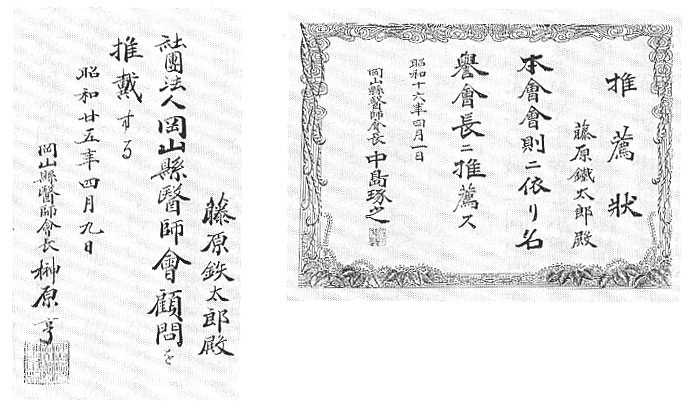 推薦状
藤原鐵太郎殿
本會會則ニ依リ名
譽會長ニ推薦ス
昭和十六年四月一日
岡山縣醫師會長 中島琢之
藤原鉄太郎殿
社團法人岡山縣醫師會顧問を
推戴する
昭和廿五年四月九日
岡山縣醫師會長 榊原亨